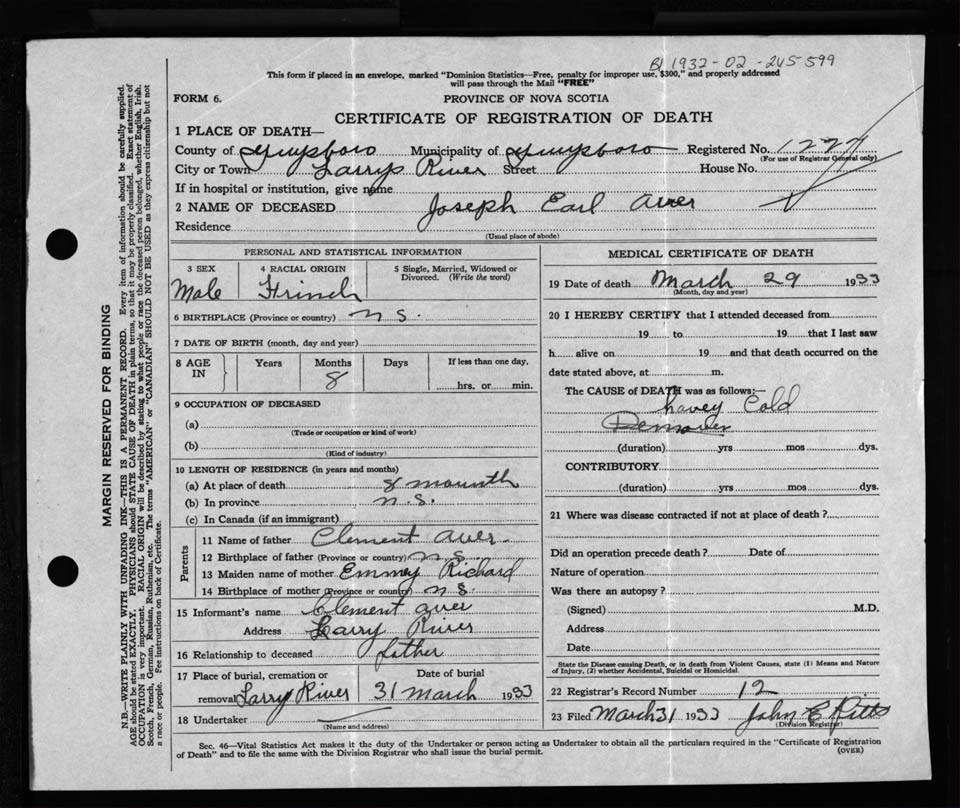 B 1932-02-245599
This form if placed in an envelope, marked "Dominion Statistics—Free, penalty for improper use, $300," and properly addressed
will pass through the Mail "FREE"
FORM 6.
PROVINCE OF NOVA SCOTIA
CERTIFICATE OF REGISTRATION OF DEATH
1 PLACE OF DEATH—
County of Guysboro Municipality of Guysboro Registered No. 1277
(For use of Registrar General only)
City or Town Larrys River Street House No.
If in hospital or institution, give name
2 NAME OF DECEASED Joseph Earl Aver
Residence
(Usual place of abode)
PERSONAL AND STATISTICAL INFORMATION
3 SEX 4 RACIAL ORIGIN 5 Single, Married, Widowed or Divorced. (Write the word)
Male Frinch
6 BIRTHPLACE (Province or country) N S.
7 DATE OF BIRTH (month, day and year)
8 AGE IN Years Months Days If less than one day,
8 hrs. or min.
9 OCCUPATION OF DECEASED
(a)
(Trade or occupation or kind of work)
(b)
(Kind of industry)
10 LENGTH OF RESIDENCE (in years and months)
(a) At place of death 8 mounth
(b) In province N. S.
(c) In Canada (if an immigrant)
Parents
11 Name of father Clement Aver
12 Birthplace of father (Province or country) N S
13 Maiden name of mother Emmey Richard
14 Birthplace of mother (Province or country) N S.
15 Informant's name Clement Aver
Address Larry River
16 Relationship to deceased father
17 Place of burial, cremation or Date of burial
removal Larry River 31 March 1933
18 Undertaker
(Name and address)
MEDICAL CERTIFICATE OF DEATH
19 Date of death March 29 1933
(Month, day and year)
20 I HEREBY CERTIFY that I attended deceased from
19 to 19 that I last saw
h alive on 19 and that death occurred on the
date stated above, at m.
The CAUSE of DEATH was as follows:—
havey Cold
(duration) yrs mos dys.
CONTRIBUTORY
(duration) yrs mos dys.
21 Where was disease contracted if not at place of death?
Did an operation precede death? Date of
Nature of operation
Was there an autopsy?
(Signed) M.D.
Address
Date
State the Disease causing Death, or in death from Violent Causes, state (1) Means and Nature
of Injury, (2) whether Accidental, Suicidal or Homicidal.
22 Registrar's Record Number 12
23 Filed March 31 1933 John C Pitts
(Division Registrar)
Sec. 46—Vital Statistics Act makes it the duty of the Undertaker or person acting as Undertaker to obtain all the particulars required in the "Certificate of Registration
of Death" and to file the same with the Division Registrar who shall issue the burial permit.
(OVER)
MARGIN RESERVED FOR BINDING
N.B.—WRITE PLAINLY WITH UNFADING INK—THIS IS A PERMANENT RECORD. Every item of information should be carefully supplied.
AGE should be stated EXACTLY. PHYSICIANS should STATE CAUSE OF DEATH in plain terms, so that it may be properly classified. Exact statement of
OCCUPATION is very important. RACIAL ORIGIN will be described by stating to what people or race the deceased person belonged, whether English, Irish,
Scotch, French, German, Russian, Ruthenian, etc. The terms "AMERICAN" or "CANADIAN" SHOULD NOT BE USED as they express citizenship but not
a race or people. See instructions on back of Certificate.